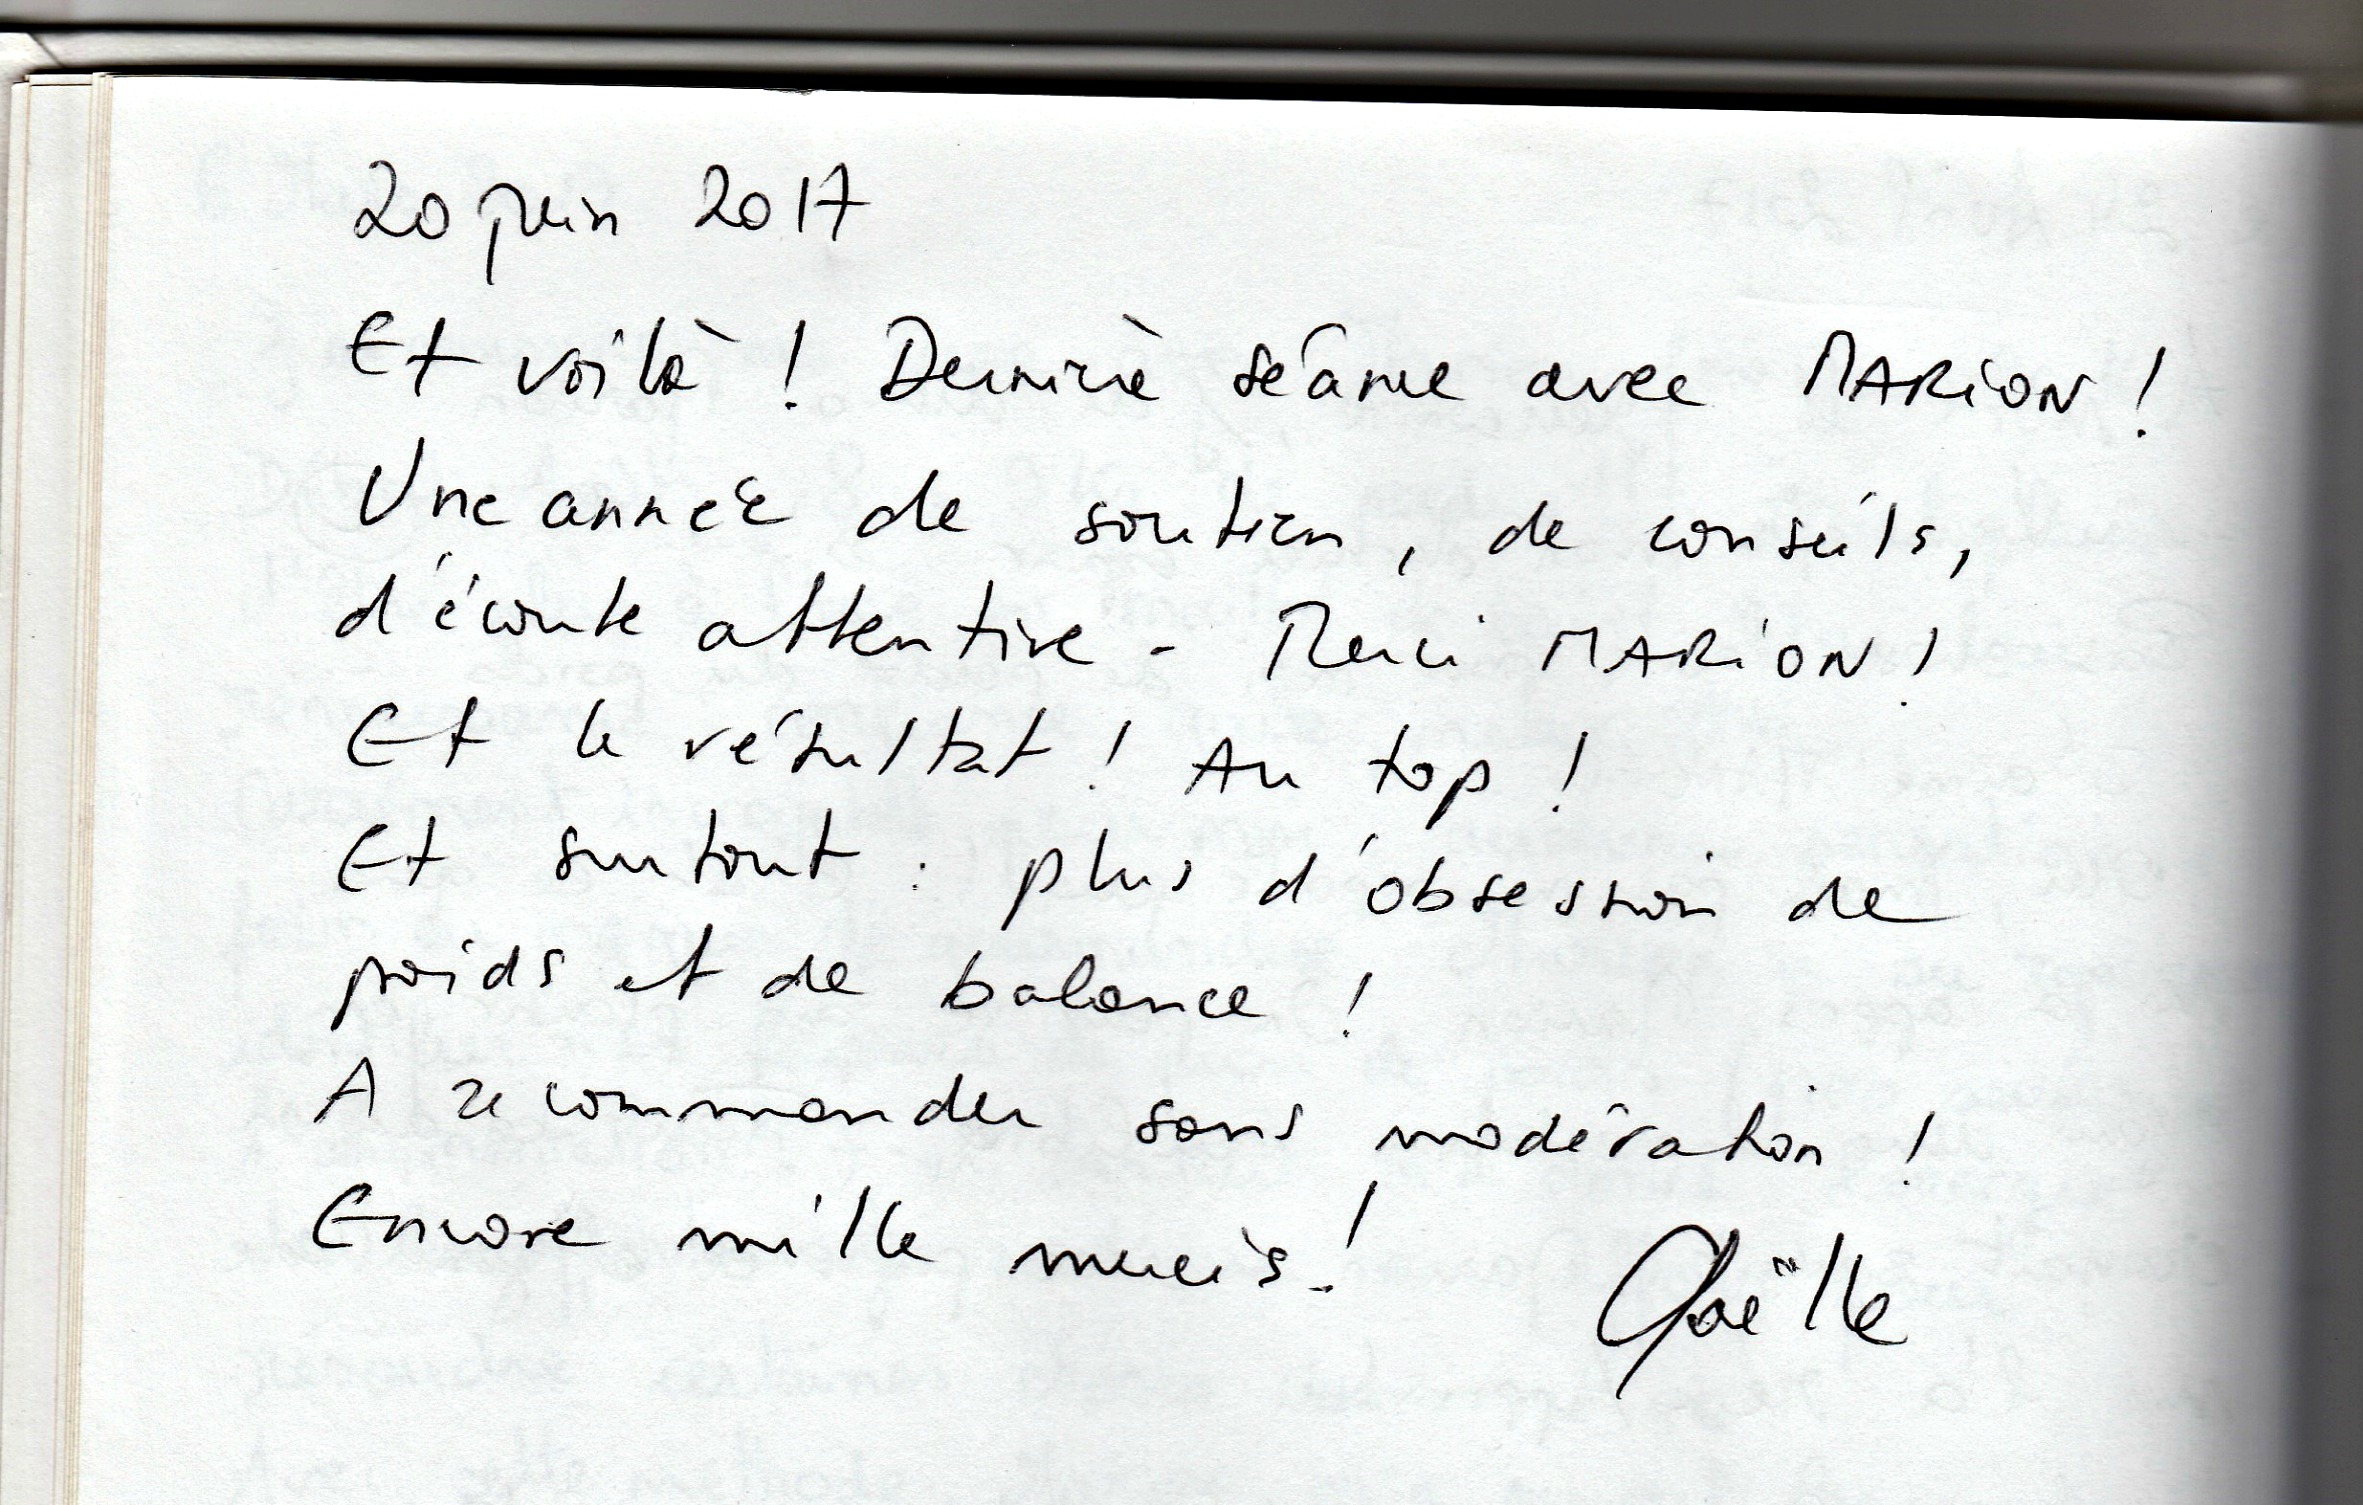 20 juin 2017
Et voilà ! Dernière séance avec MARiON !
Une année de soutien, de conseils,
d'écoute attentive - Merci MARiON !
Et le résultat ! Au top !
Et surtout : plus d'obsession de
poids et de balance !
A recommander sans modération !
Encore mille mercis !
Gaëlle